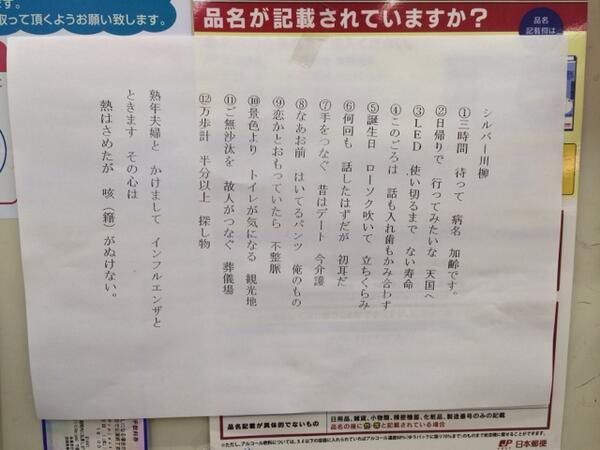 す。
取って頂くようお願い致します。
品名が記載されていますか？
品名
シルバー川柳
①三時間　待って　病名　加齢です。
②日帰りで　行ってみたいな　天国へ
③LED　使い切るまで　ない寿命
④このごろは　話も入れ歯もかみ合わす
⑤誕生日　ローソク吹いて　立ちくらみ
⑥何回も　話したはずだが　初耳だ
⑦手をつなぐ　昔はデート　今介護
⑧なあお前　はいてるパンツ　俺のもの
⑨恋かとおもっていたら　不整脈
⑩景色より　トイレが気になる　観光地
⑪ご無沙汰を　故人がつなぐ　葬儀場
⑫万歩計　半分以上　探し物
熟年夫婦と　かけまして　インフルエンザと
ときます　その心は
熱はさめたが　咳（籍）がぬけない。
品名記載が具体的でないもの
日用品、雑貨、小物類、精密機器、化粧品、製造番号のみの記載
品名の後に
と記載されている場合
日本郵便